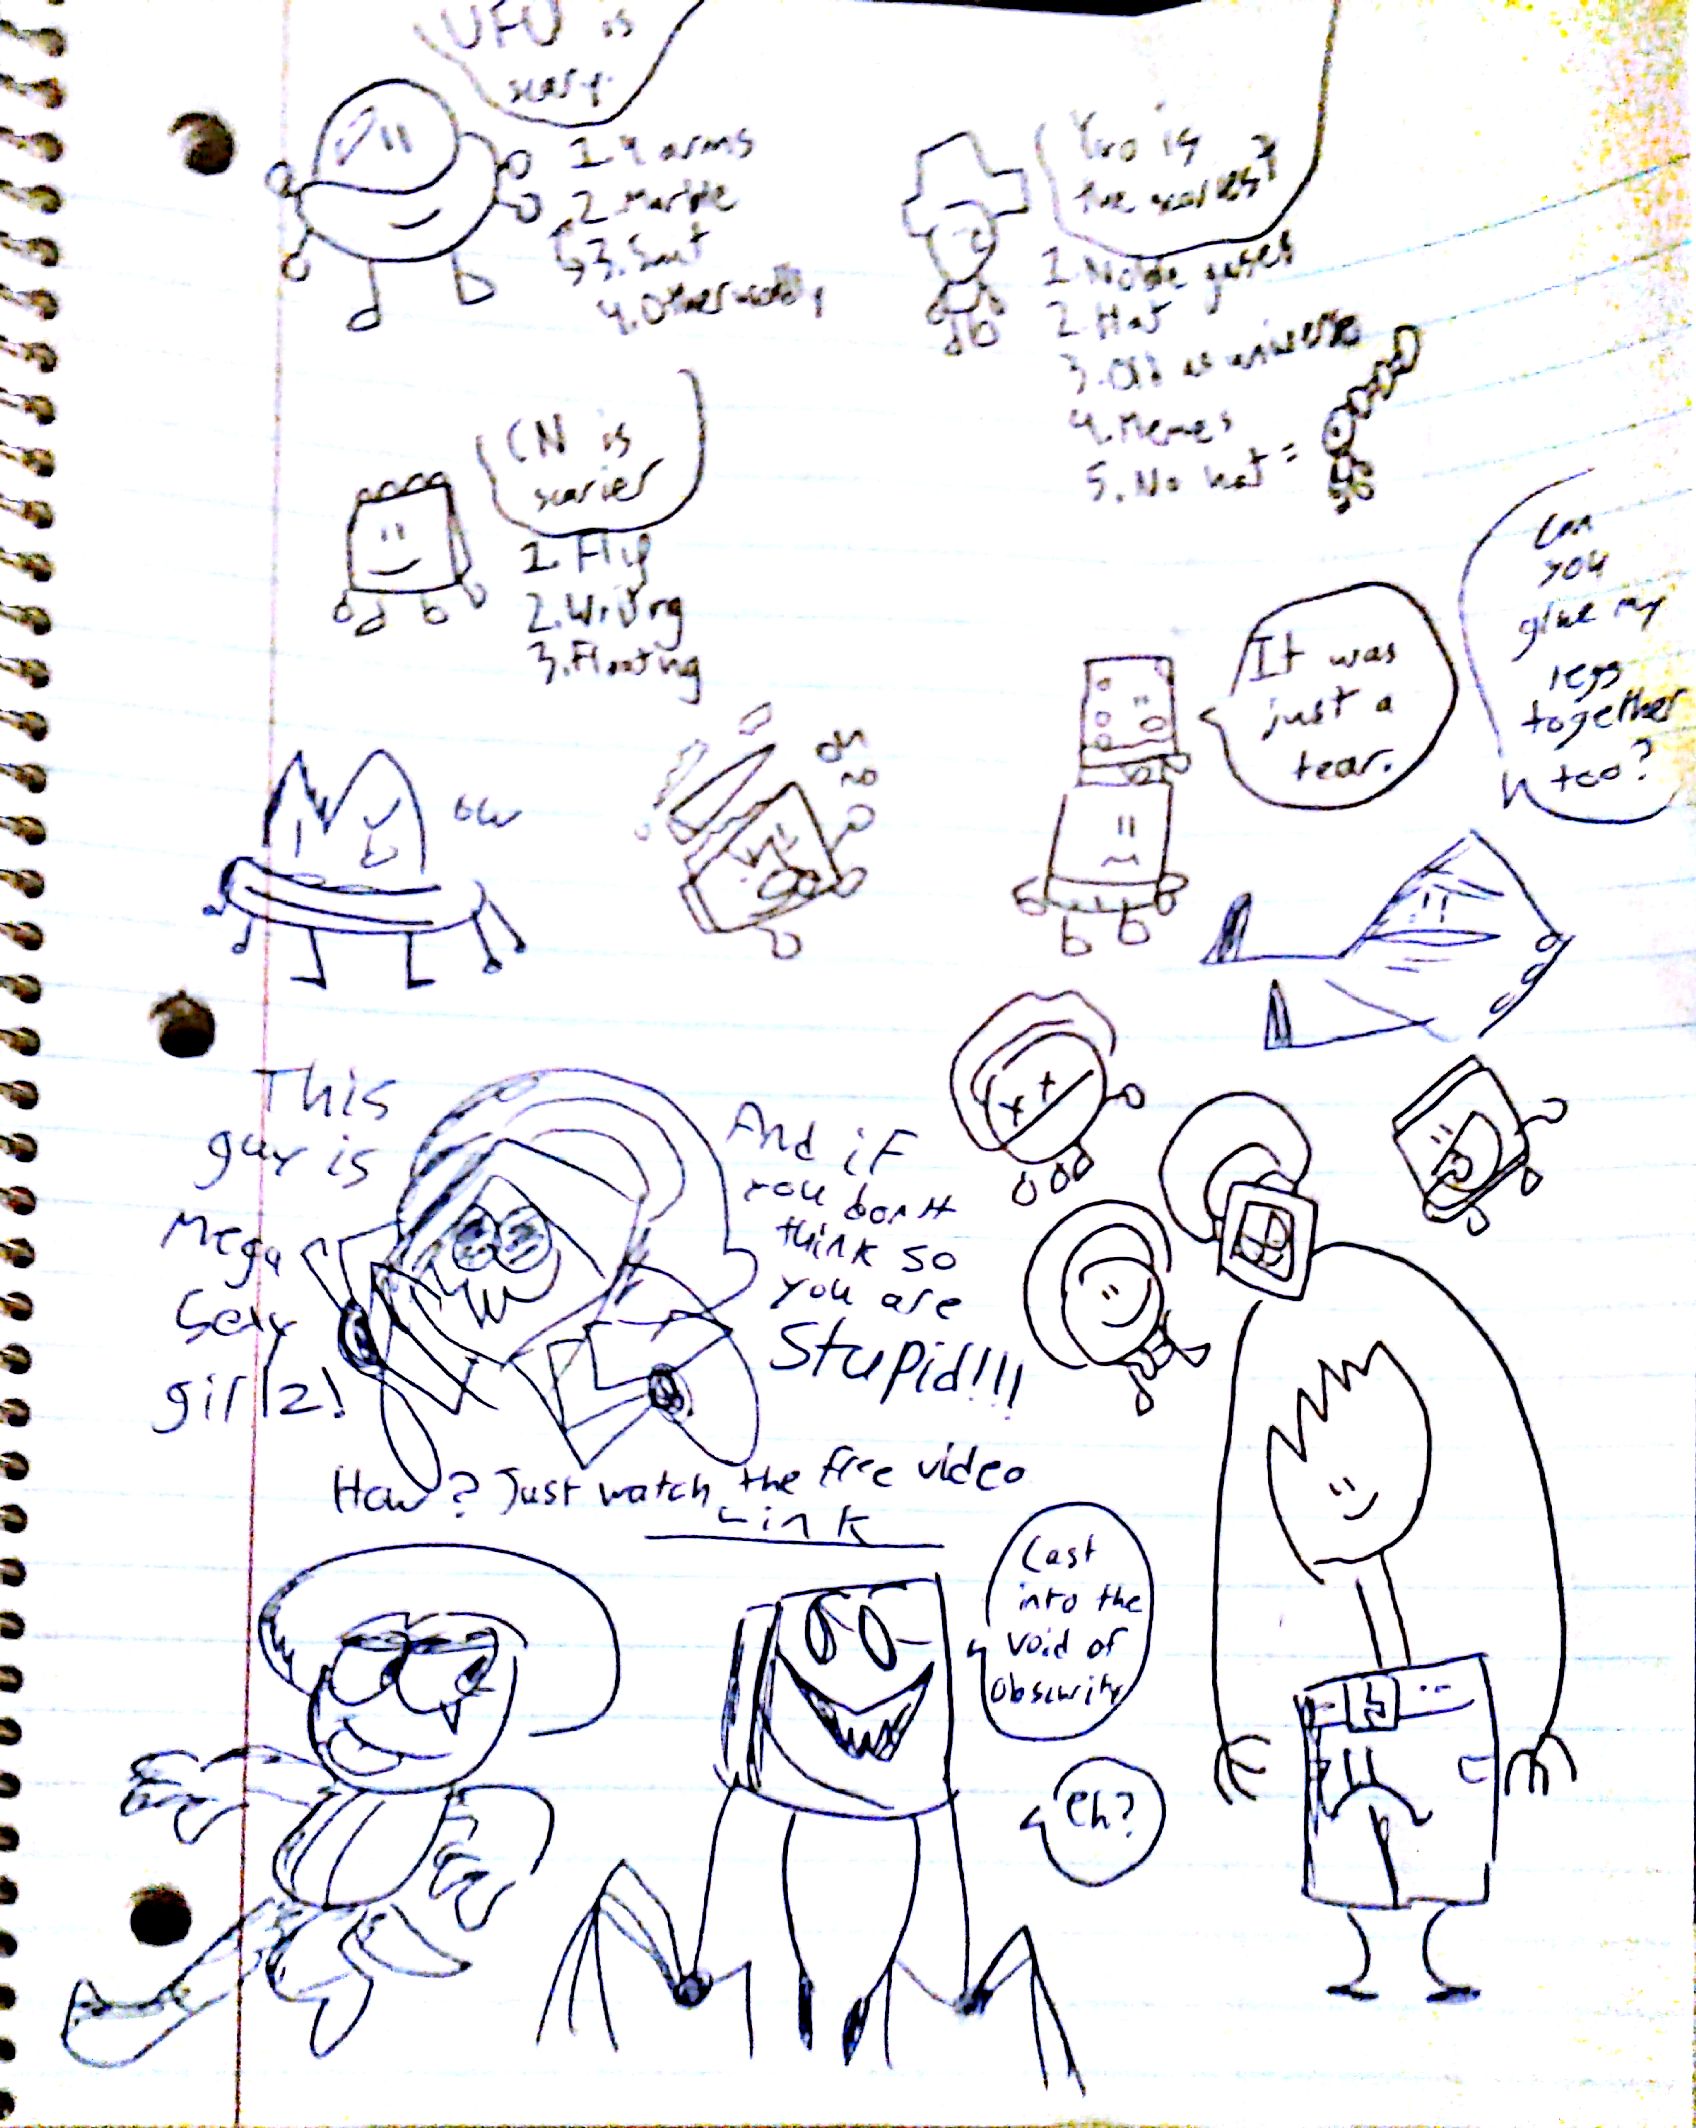 UFU is
scary.
1. 4 arms
2. Marble
3. Smt
4. Otherworldly
is
the scariest
1. Noble gases
2. Hat
3. Old as universe
4. Memes
5. No hat =
CN is
scarier
1. Flip
2. Writing
3. Floating
Can
you
glue my
legs
together
too?
It was
just a
tear.
ow
oh
no
This
guy is
Mega
Sexy
girlz!
And if
you don't
think so
you are
Stupid!!!
How? Just watch the free video
Link
Cast
into the
void of
obscurity
eh?